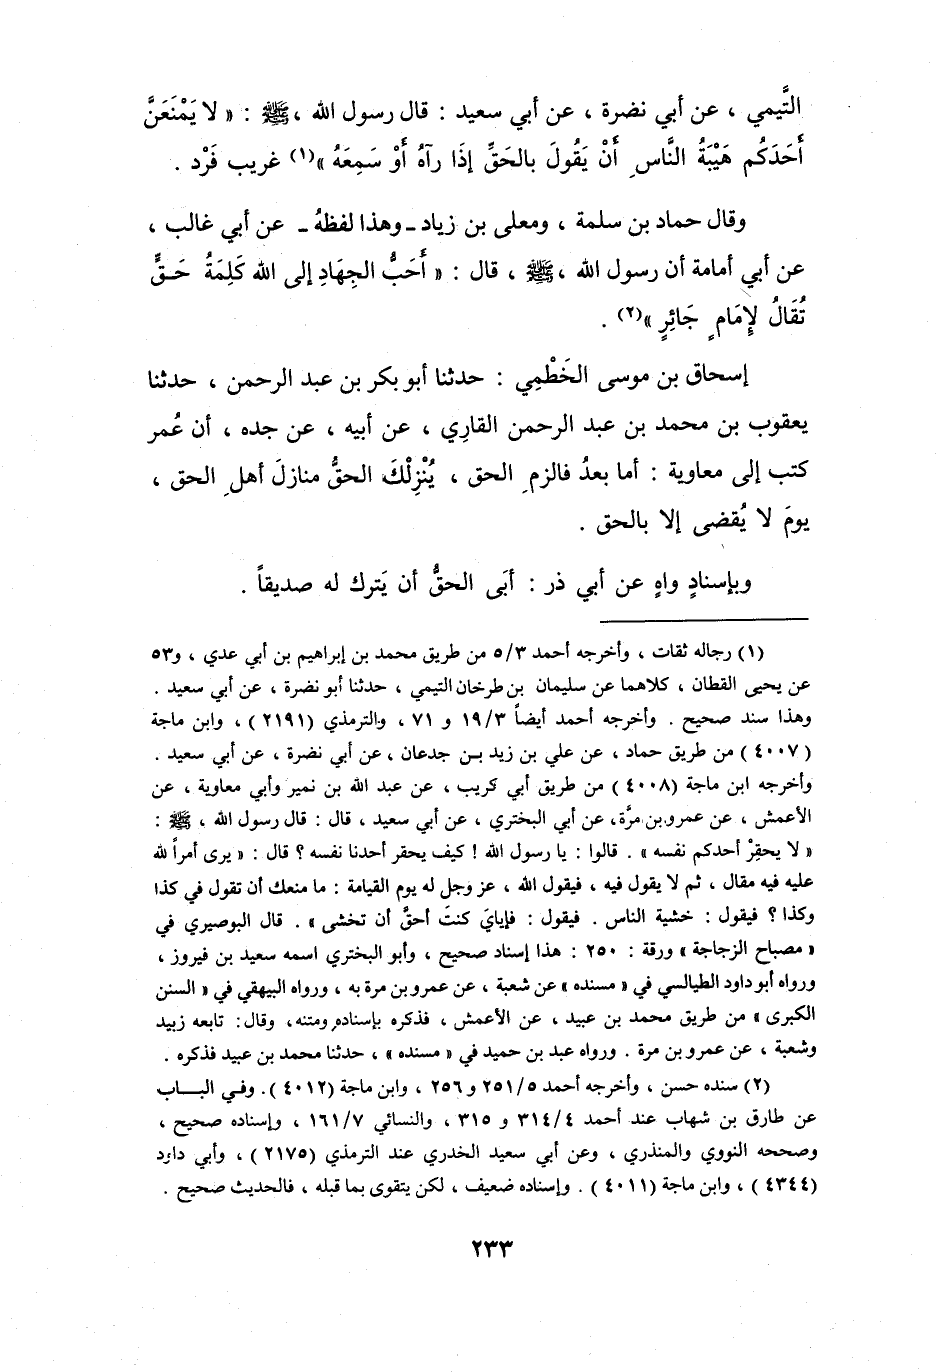 التَّيمي ، عن أبي نضرة ، عن أبي سعيد : قال رسول الله ، ﷺ : « لا يَمْنَعَنَّ
أَحَدَكُم هَيْبَةُ النَّاسِ أَنْ يَقُولَ بالحَقِّ إذَا رآهُ أَوْ سَمِعَهُ »(١) غريب فَرْد .
وقال حماد بن سلمة ، ومعلى بن زياد ـ وهذا لفظهُ ـ عن أبي غالب ،
عن أبي أمامة أن رسول الله ، ﷺ ، قال : « أَحَبُّ الجِهَادِ إلى الله كَلِمَةُ حَقٍّ
تُقَالُ لإِمَامٍ جَائِرٍ »(٢) .
إسحاق بن موسى الخَطْمِي : حدثنا أبو بكر بن عبد الرحمن ، حدثنا
يعقوب بن محمد بن عبد الرحمن القارِي ، عن أبيه ، عن جده ، أن عُمر
كتب إلى معاوية : أما بعدُ فالزمِ الحق ، يُنْزِلْكَ الحقُّ منازلَ أهلِ الحق ،
يومَ لا يُقضى إلا بالحق .
وبإسنادٍ واهٍ عن أبي ذر : أبَى الحقُّ أن يَترك له صديقاً .
(١) رجاله ثقات ، وأخرجه أحمد ٥/٣ من طريق محمد بن إبراهيم بن أبي عدي ، و٥٣
عن يحيى القطان ، كلاهما عن سليمان بن طرخان التيمي ، حدثنا أبو نضرة ، عن أبي سعيد .
وهذا سند صحيح . وأخرجه أحمد أيضاً ١٩/٣ و ٧١ ، والترمذي (٢١٩١) ، وابن ماجة
(٤٠٠٧) من طريق حماد ، عن علي بن زيد بـن جدعان ، عن أبي نضرة ، عن أبي سعيد .
وأخرجه ابن ماجة (٤٠٠٨) من طريق أبي كريب ، عن عبد الله بن نمير وأبي معاوية ، عن
الأعمش ، عن عمرو بن مرَّة، عن أبي البختري ، عن أبي سعيد ، قال : قال رسول الله ، ﷺ :
« لا يحقِرْ أحدكم نفسه » . قالوا : يا رسول الله ! كيف يحقر أحدنا نفسه ؟ قال : « يرى أمراً لله
عليه فيه مقال ، ثم لا يقول فيه ، فيقول الله ، عز وجل له يوم القيامة : ما منعك أن تقول في كذا
وكذا ؟ فيقول : خشية الناس . فيقول : فإيايَ كنتَ أحقَّ أن تخشى » . قال البوصيري في
« مصباح الزجاجة » ورقة : ٢٥٠ : هذا إسناد صحيح ، وأبو البختري اسمه سعيد بن فيروز ،
ورواه أبو داود الطيالسي في « مسنده » عن شعبة ، عن عمرو بن مرة به ، ورواه البيهقي في « السنن
الكبرى » من طريق محمد بن عبيد ، عن الأعمش ، فذكره بإسناده ومتنه ، وقال : تابعه زبيد
وشعبة ، عن عمرو بن مرة . ورواه عبد بن حميد في « مسنده » ، حدثنا محمد بن عبيد فذكره .
(٢) سنده حسن ، وأخرجه أحمد ٢٥١/٥ و ٢٥٦ ، وابن ماجة (٤٠١٢) . وفـي البـــاب
عن طارق بن شهاب عند أحمد ٣١٤/٤ و ٣١٥ ، والنسائي ١٦١/٧ ، وإسناده صحيح ،
وصححه النووي والمنذري ، وعن أبي سعيد الخدري عند الترمذي (٢١٧٥) ، وأبي داود
(٤٣٤٤) ، وابن ماجة (٤٠١١) . وإسناده ضعيف ، لكن يتقوى بما قبله ، فالحديث صحيح .
٢٣٣